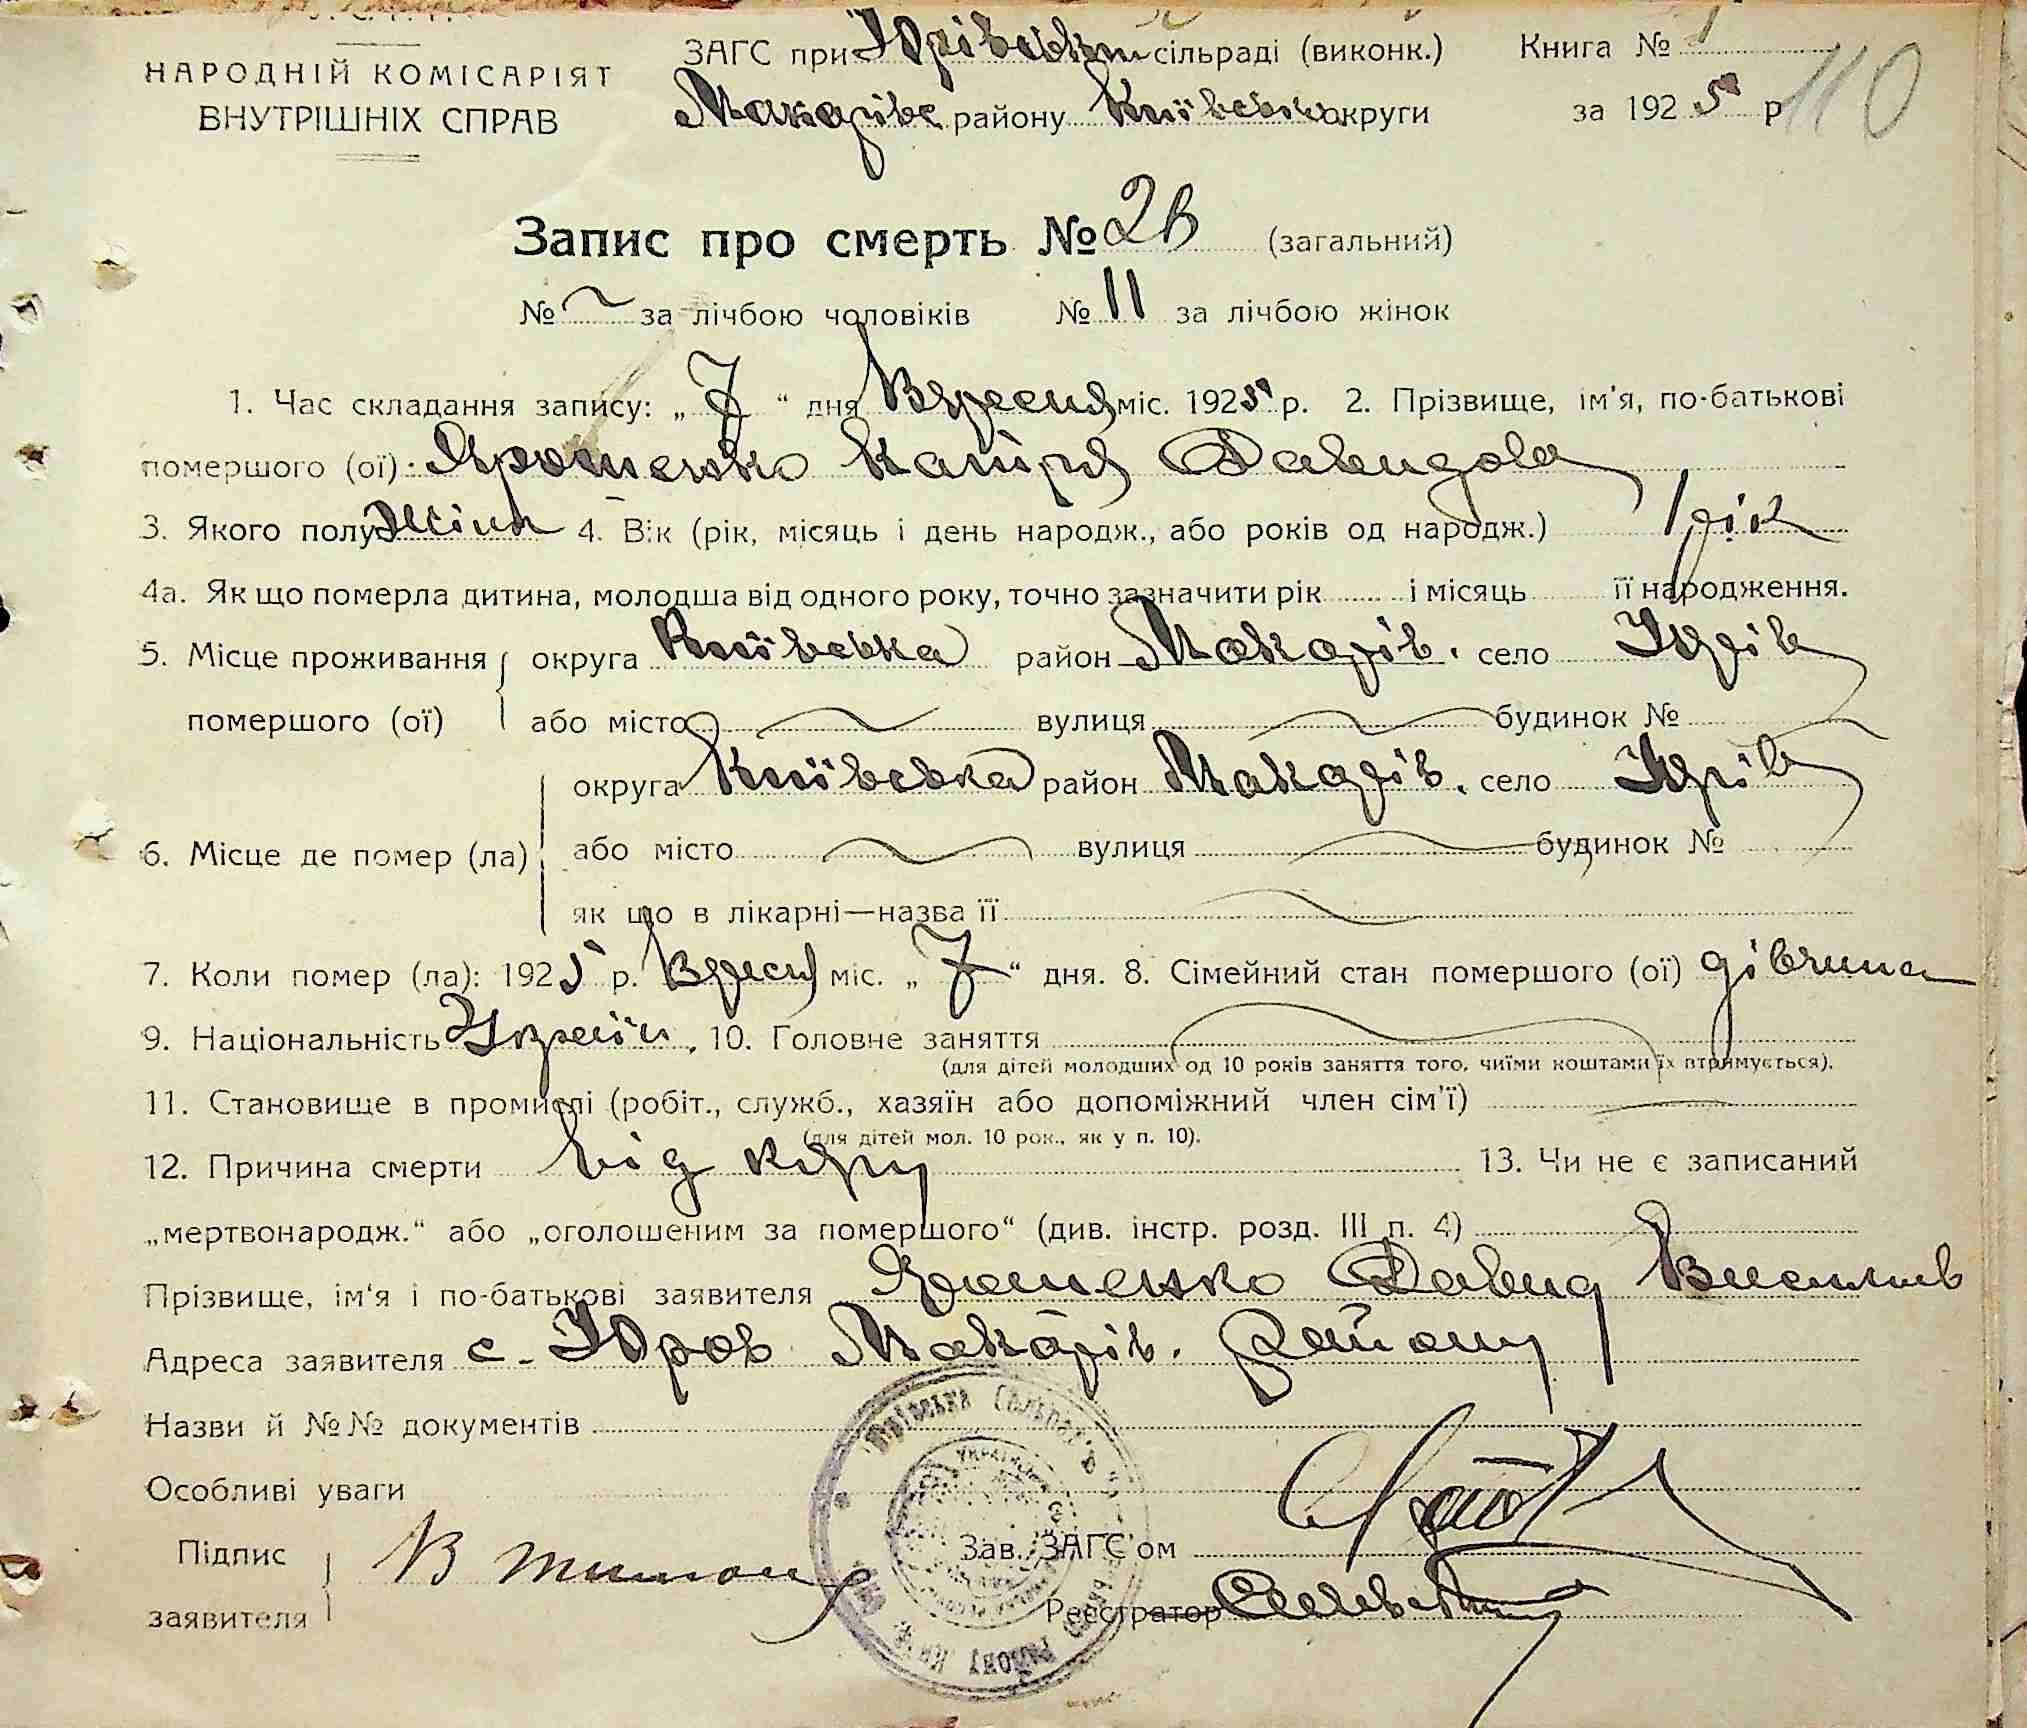 ЗАГС при Юрівській сільраді (виконк.) Книга № 1
НАРОДНІЙ КОМІСАРІЯТ
ВНУТРІШНІХ СПРАВ
Макарівс району Київської округи за 1925 р
110
Запис про смерть № 2в (загальний)
№ ~ за лічбою чоловіків № 11 за лічбою жінок
1. Час складання запису: „ 7 “ дня Вересня міс. 1925 р. 2. Прізвище, ім'я, по-батькові
помершого (ої): Ярошенко Катря Давидова
3. Якого полу Жіноч 4. Вік (рік, місяць і день народж., або років од народж.) 1 рік
4а. Як що померла дитина, молодша від одного року, точно зазначити рік і місяць її народження.
5. Місце проживання округа Київська район Макарів. село Юрів
помершого (ої) або місто вулиця будинок №
округа Київська район Макарів. село Юрів
6. Місце де помер (ла) або місто вулиця будинок №
як що в лікарні—назва її
7. Коли помер (ла): 1925 р. Вересн міс. „ 7 “ дня. 8. Сімейний стан помершого (ої) дівчина
9. Національність Україн. 10. Головне заняття
(для дітей молодших од 10 років заняття того, чиїми коштами їх втримується).
11. Становище в промислі (робіт., служб., хазяїн або допоміжний член сім'ї)
(для дітей мол. 10 рок., як у п. 10).
12. Причина смерти від кору 13. Чи не є записаний
„мертвонародж.“ або „оголошеним за помершого“ (див. інстр. розд. III п. 4)
Прізвище, ім'я і по-батькові заявителя Ярошенко Давид Васильів
Адреса заявителя с. Юров Макарів. Району
Назви й №№ документів
Особливі уваги
Підпис
заявителя
Зав. ЗАГС'ом
Реєстратор